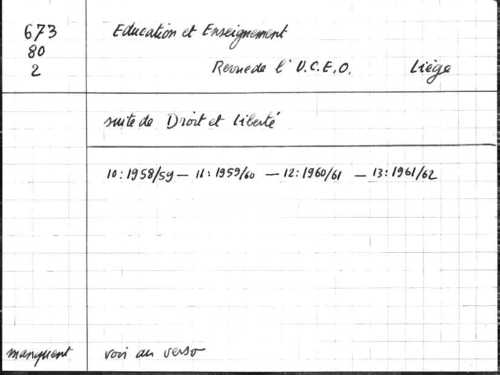 673 Education et Enseignement
80
2 Revue de l' U.C.E.O. Liège
suite de Droit et Liberté
10: 1958/59 — 11: 1959/60 — 12: 1960/61 — 13: 1961/62
manquent voir au verso